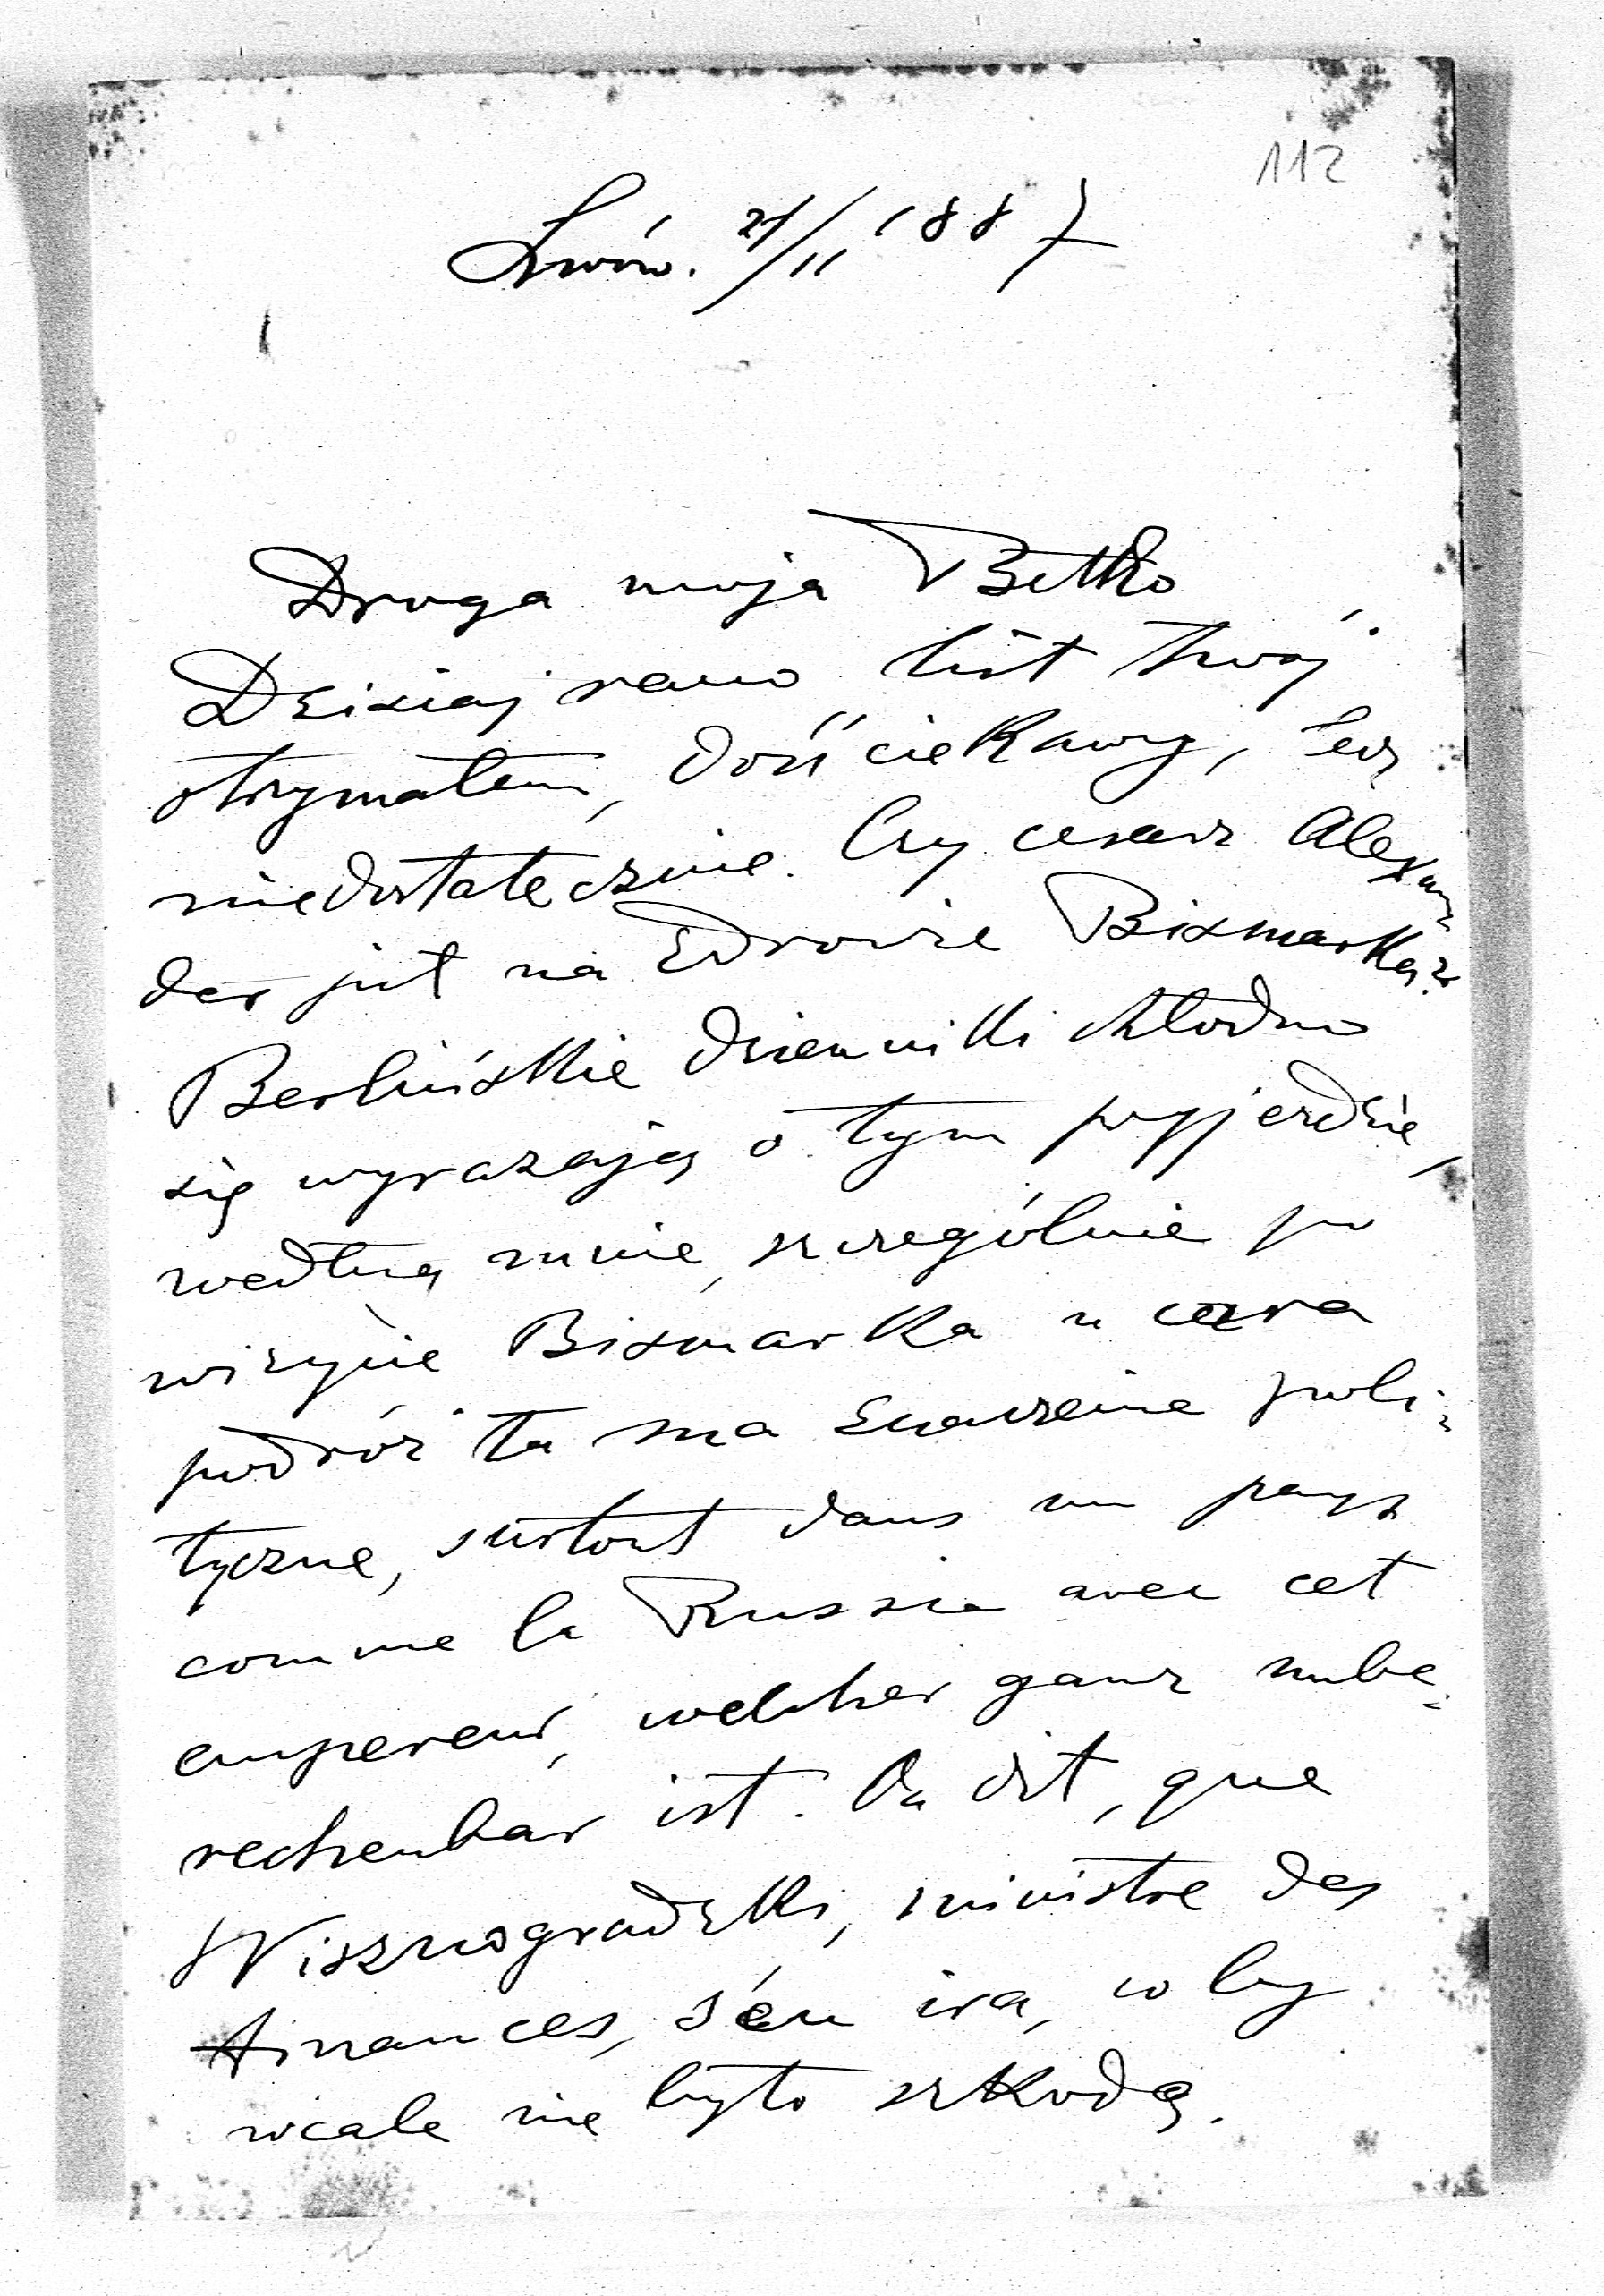 112
Lwów. 21/11 1887
Droga moja Betko
Dzisiaj rano list twój
otrzymałem, dość ciekawy, lecz
niedostatecznie. Czy cesarz Alexan-
der pił na zdrowie Bismarka?
Berlińskie dzienniki chłodno
się wyrazają o tym przyjezdzie,
według mnie, szczególnie po
wizycie Bismarka u cara
podróż ta ma znaczenie poli-
tyczne, surtout dans un pays
comme la Russie avec cet
empereur, welcher ganz unbe-
rechenbar ist. On dit, que
Wisznogradzki, ministre des
finances, s'en ira, co by
wcale nie było szkodą.